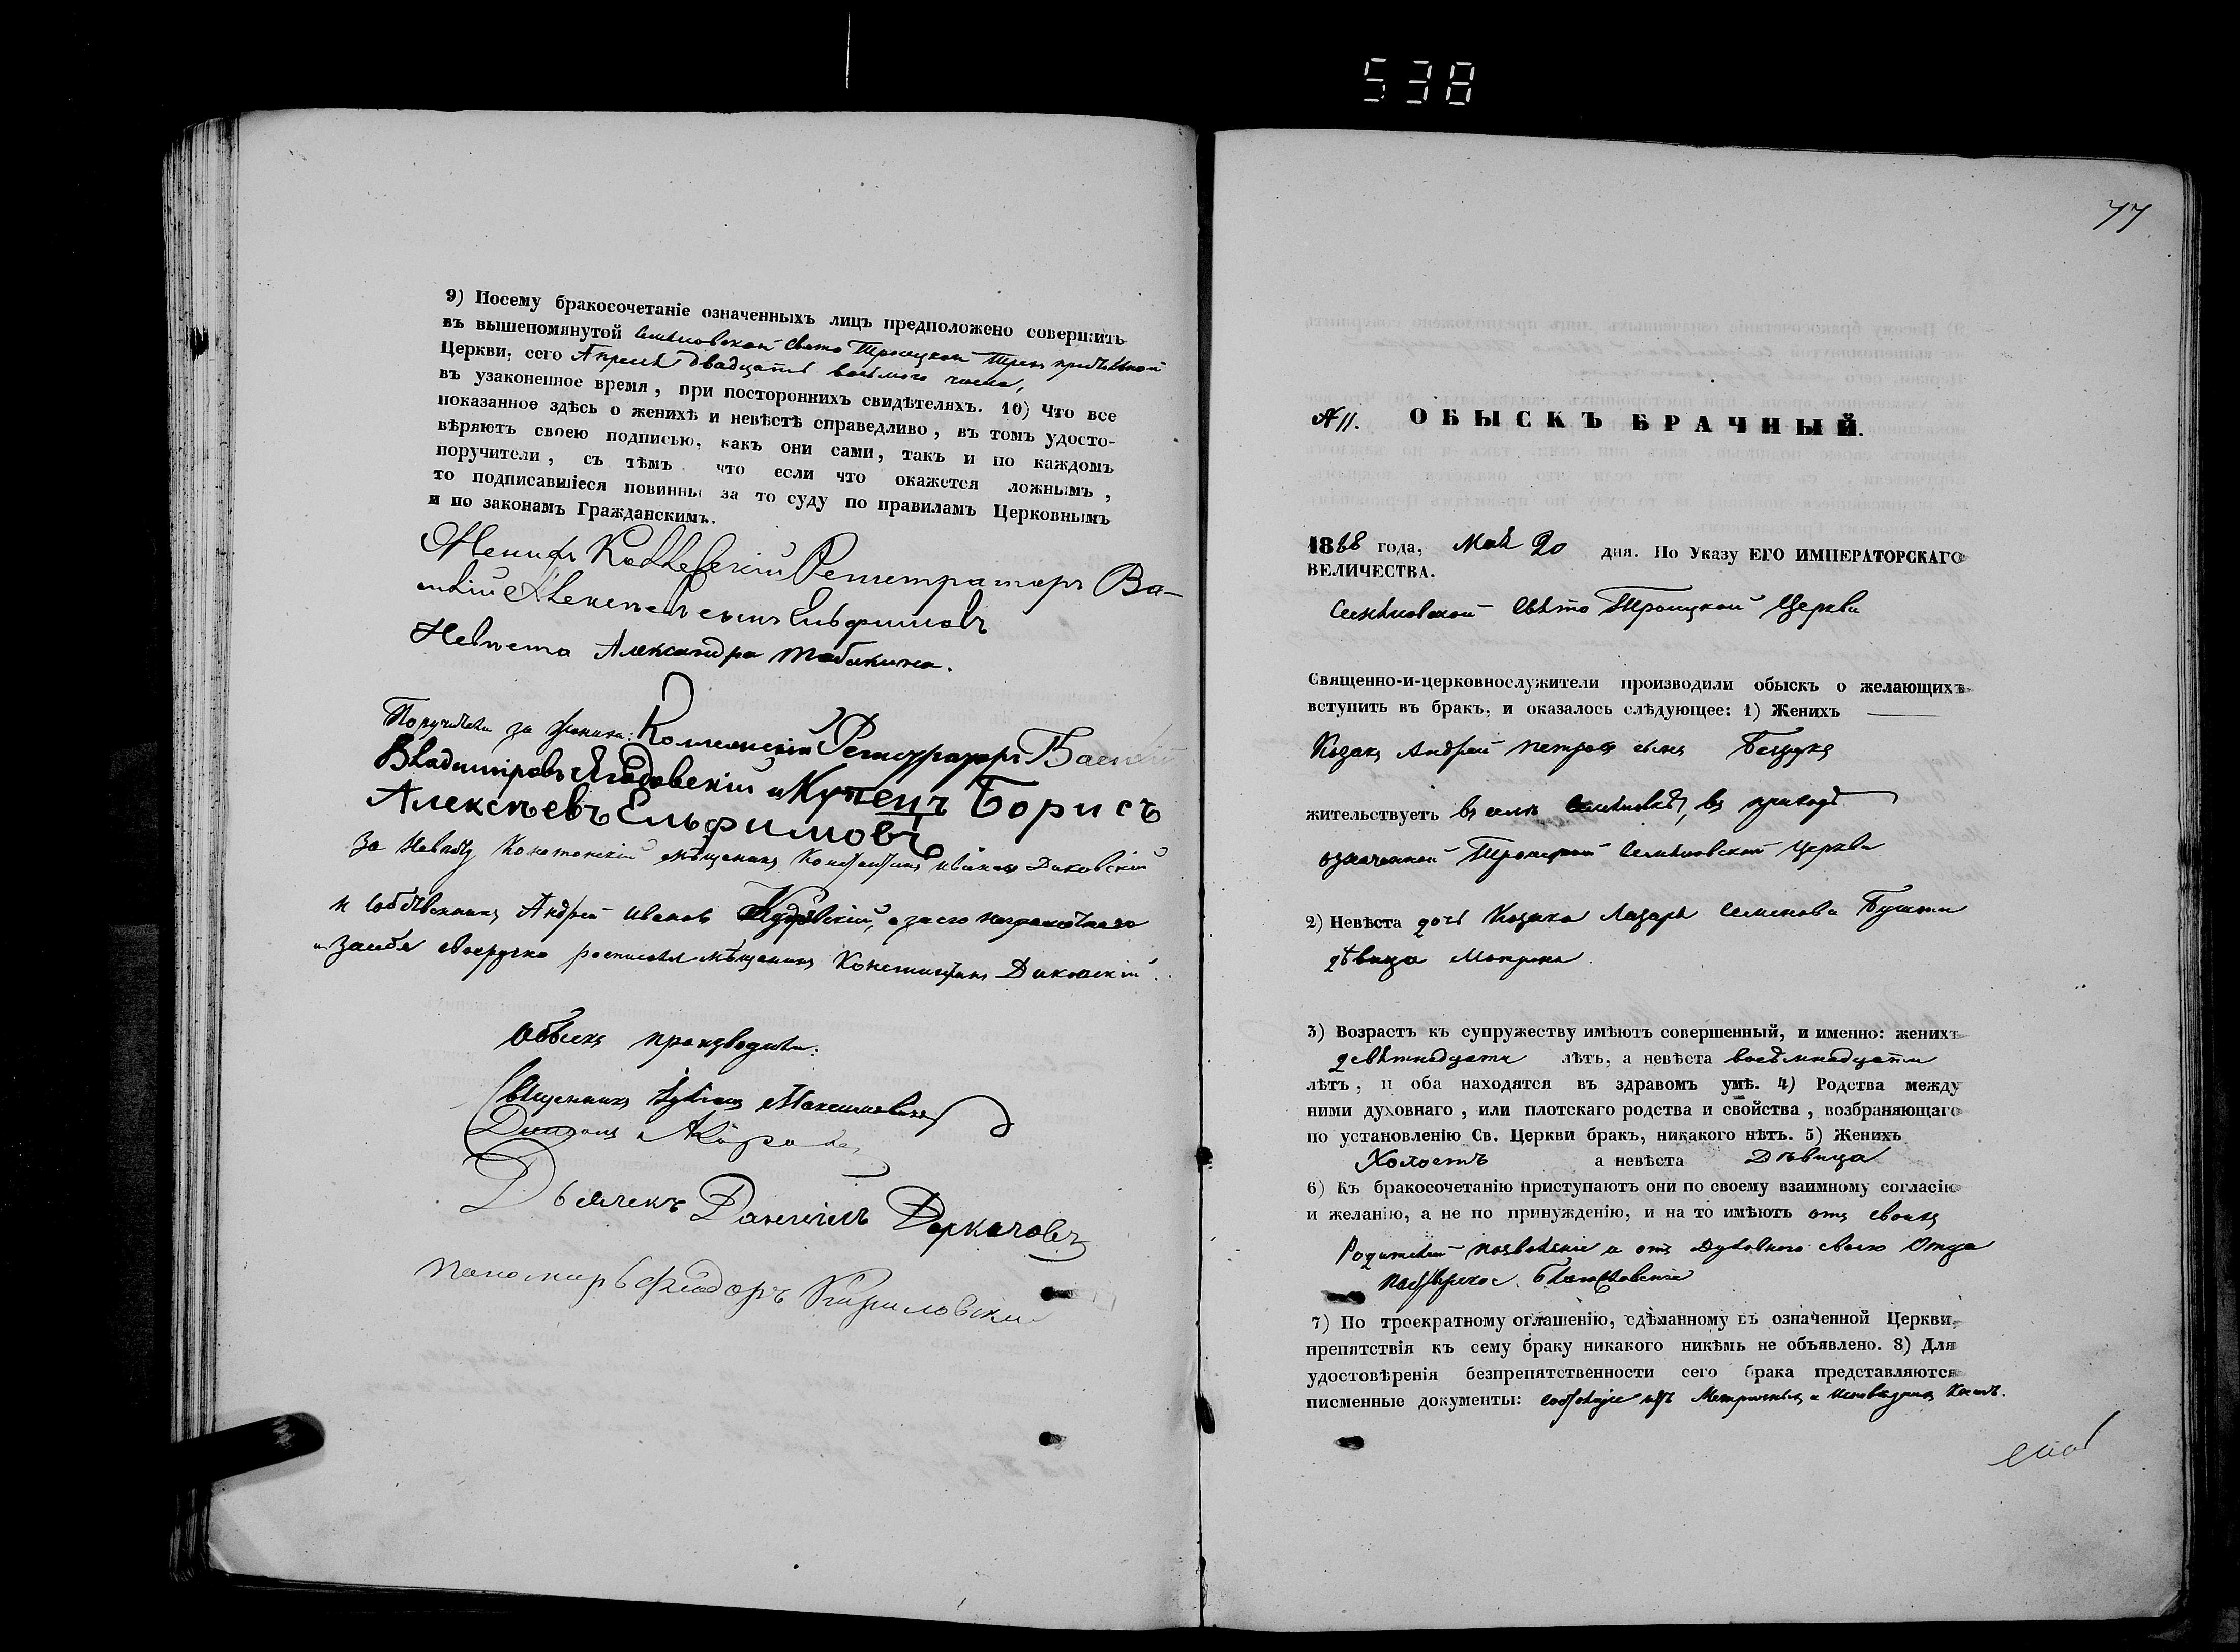 538
9) Посему бракосочетаніе означенныхъ лицъ предположено совершить
въ вышепомянутой Семеновской Свято Троицкой
Церкви, сего Апреля двадцать восьмого числа,
въ узаконенное время, при постороннихъ свидѣтеляхъ. 10) Что все
показанное здѣсь о женихѣ и невѣстѣ справедливо, въ томъ удосто-
вѣряютъ своею подписью, какъ они сами, такъ и по каждомъ
поручители, съ тѣмъ что если что окажется ложнымъ,
то подписавшіеся повинны за то суду по правиламъ Церковнымъ
и по законамъ Гражданскимъ.
Женихъ Коллежскій Регистраторъ Ва-
силій Алексѣевъ сынъ Ельфимовъ
Невѣста Александра Табакина.
Поручители за жениха: Коллежскій Регистраторъ Василій
Владиміровъ и Купецъ Борисъ
Алексѣевъ Ельфимовъ
За Невѣсту Конотопскій мѣщанинъ Константинъ Ивановъ Диковскій
и Собственникъ Андрей Ивановъ а за его неграмотнаго
и за себя своеручно росписался мѣщанинъ Константинъ Диковскій.
Обыскъ производили:
Священникъ Максимовичъ
Дьячекъ Даніилъ Деркачовъ
Пономарь Феодоръ Кириловскій
77
№ 11. ОБЫСКЪ БРАЧНЫЙ.
1868 года, Мая 20 дня. По Указу ЕГО ИМПЕРАТОРСКАГО
ВЕЛИЧЕСТВА.
Семеновской Свято Троицкой Церкви
Священно-и-церковнослужители производили обыскъ о желающихъ
вступить въ бракъ, и оказалось слѣдующее: 1) Женихъ
Козакъ Андрей Петровъ сынъ
жительствуетъ въ селѣ Семеновкѣ, въ приходѣ
означенной Троицкой Семеновской Церкви
2) Невѣста дочь Козака Лазаря Семенова
дѣвица Матрона.
3) Возрастъ къ супружеству имѣютъ совершенный, и именно: женихъ
девятнадцати лѣтъ, а невѣста восемнадцати
лѣтъ, и оба находятся въ здравомъ умѣ. 4) Родства между
ними духовнаго, или плотскаго родства и свойства, возбраняющаго
по установленію Св. Церкви бракъ, никакого нѣтъ. 5) Женихъ
Холостъ а невѣста Дѣвица
6) Къ бракосочетанію приступаютъ они по своему взаимному согласію
и желанію, а не по принужденію, и на то имѣютъ отъ своихъ
Родителей позволеніе и отъ Духовного своего Отца
Благословеніе
7) По троекратному оглашенію, сдѣланному въ означенной Церкви,
препятствія къ сему браку никакого никѣмъ не объявлено. 8) Для
удостовѣренія безпрепятственности сего брака представляются
писменные документы: Метрическихъ и Исповѣдныхъ Книгъ.